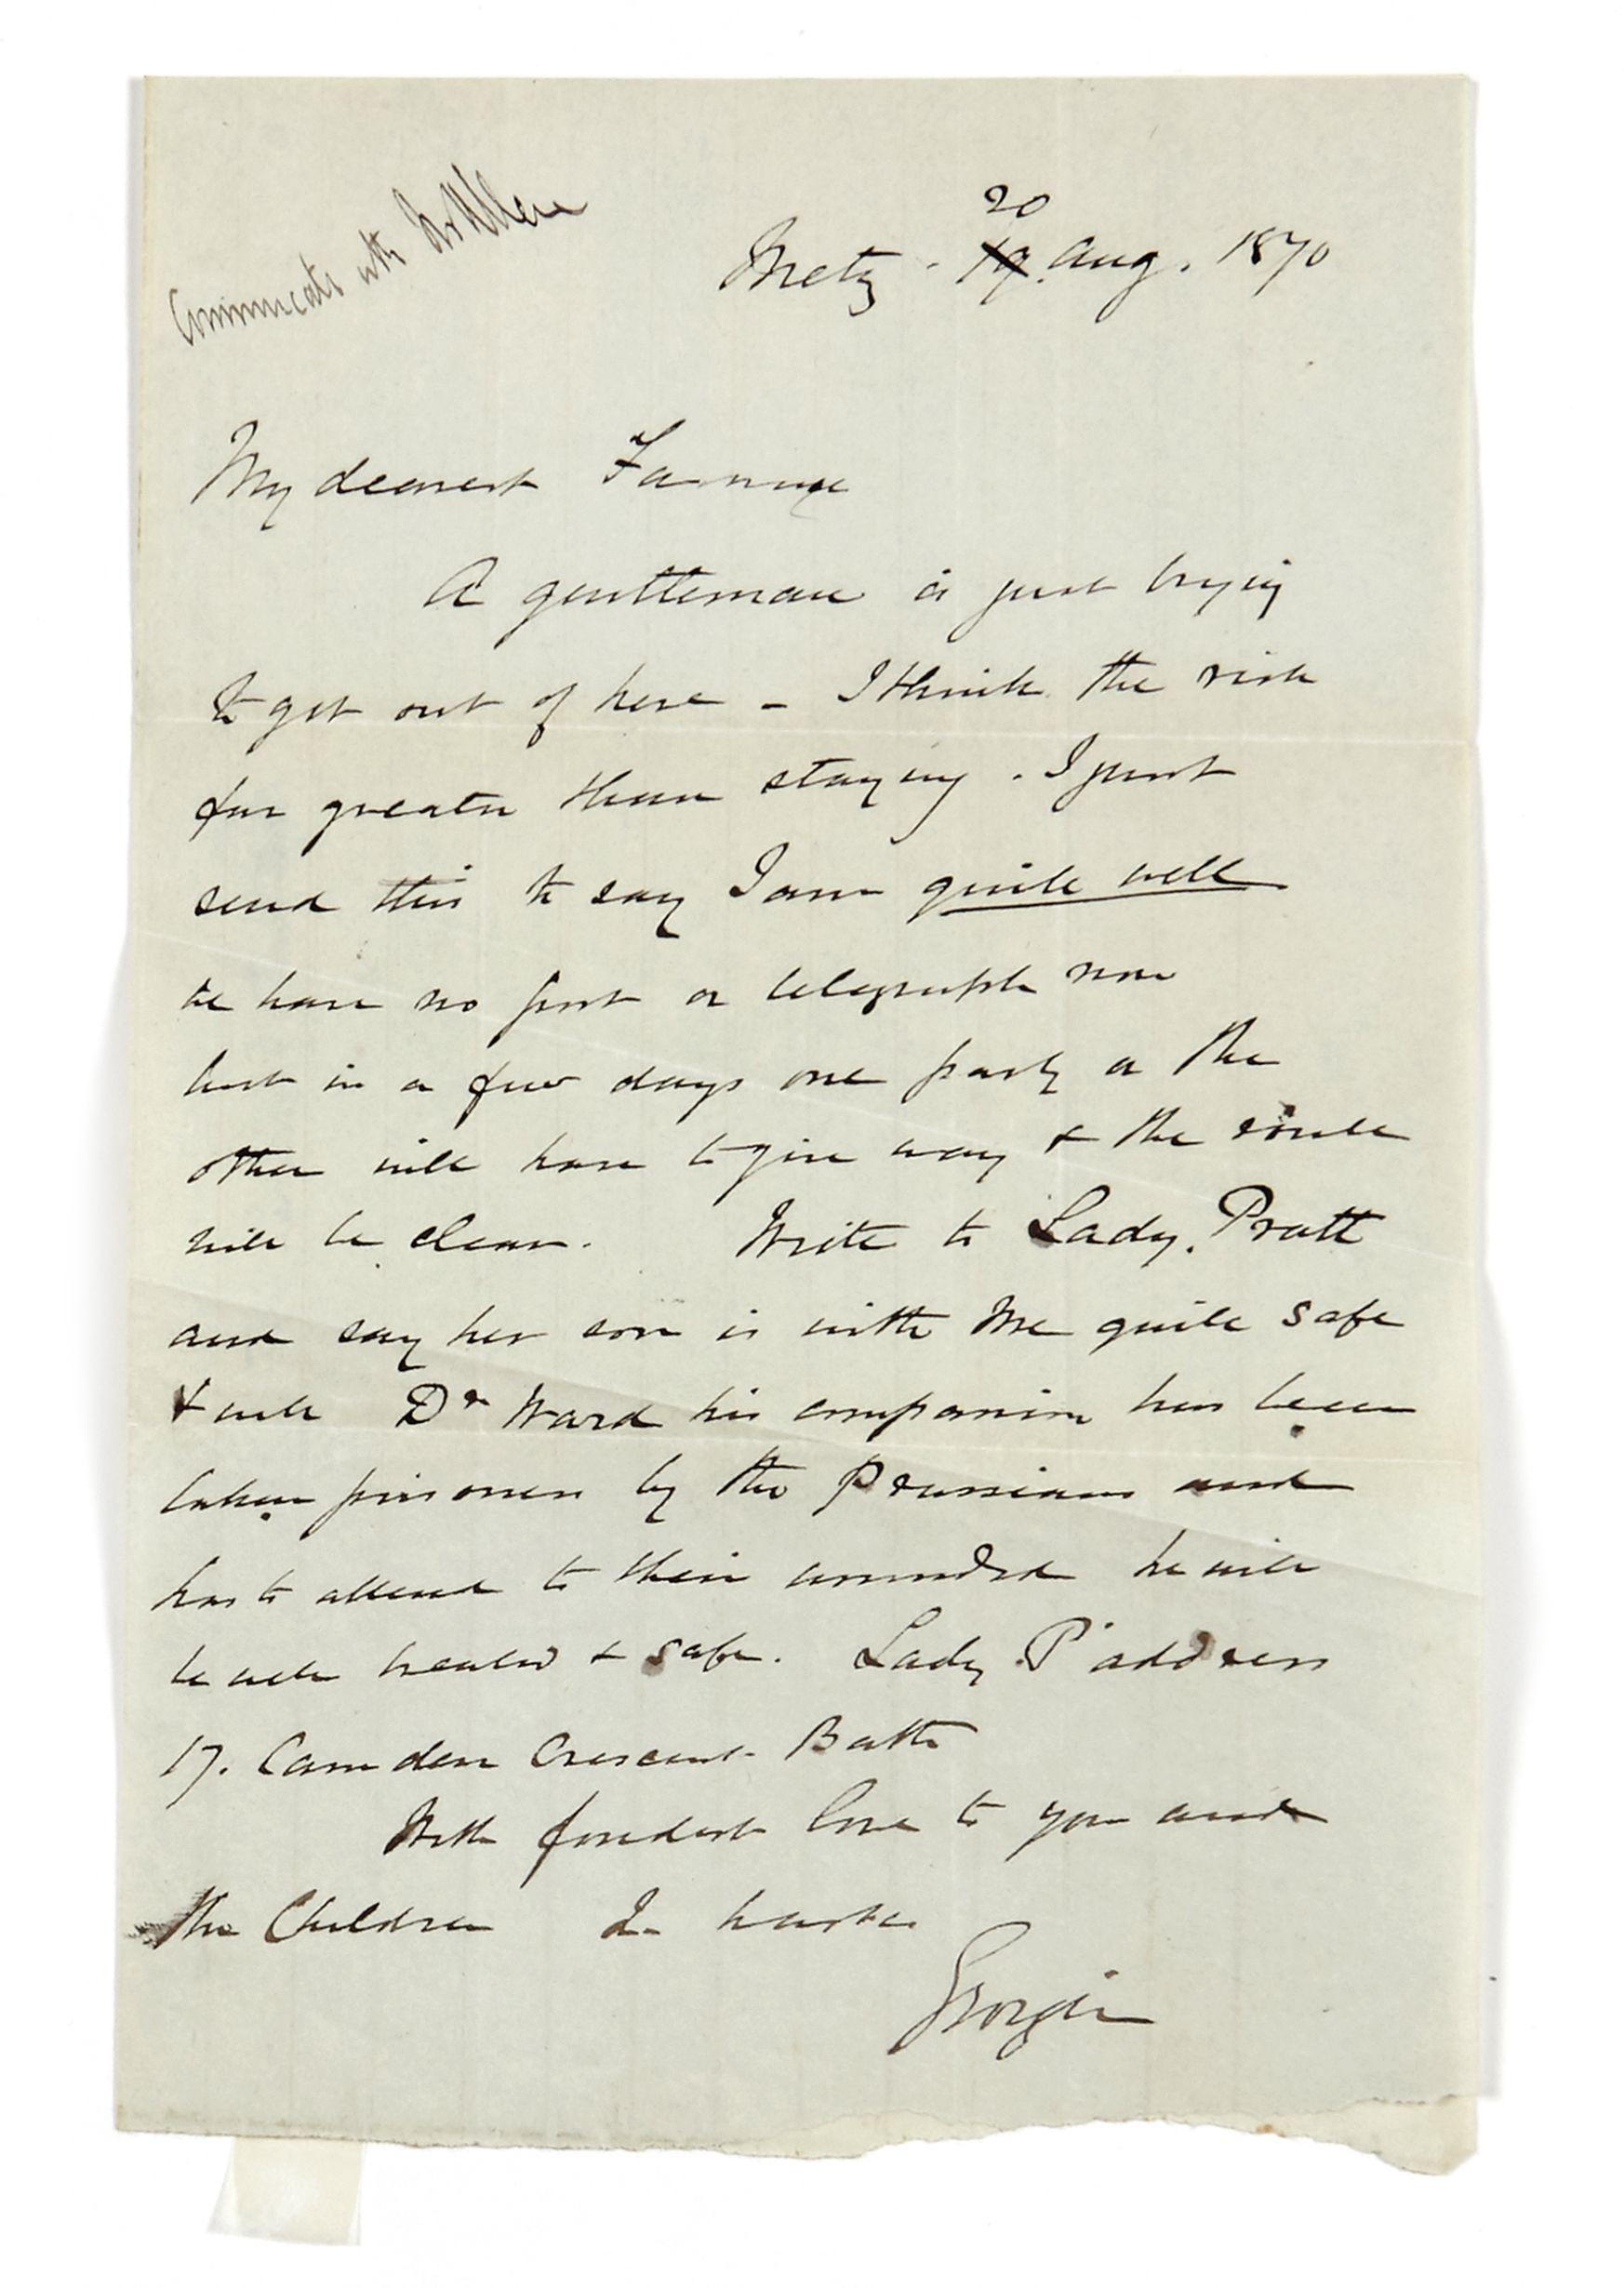 Communicate with
20
Metz - 19. Aug. 1870
My dearest Fannie
A gentleman is just trying
to get out of here - I think the risk
far greater than staying. I just
send this to say I am quite well
we have no post or telegraph now
but in a few days one party or the
other will have to give way & the route
will be clear. Write to Lady Pratt
and say her son is with me quite safe
& well Dr Ward his companion has been
taken prisoner by the Prussians and
has to attend to their wounded he will
be well treated & safe. Lady P' address
17. Camden Crescent Bath
With fondest love to you and
the Children In haste
Georgie